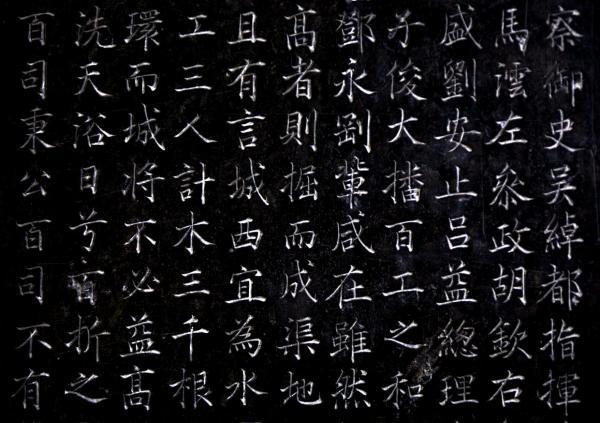 察御史吴綽都指揮
馬澐左叅政胡欽右
盛劉安止吕益總理
子俊大播百工之和
鄧永劉軰咸在雖然
髙者則掘而成渠地
且有言城西宜為水
工三人計木三千根
環而城將不必益髙
洗天浴日兮百折之
百司秉公百司不有